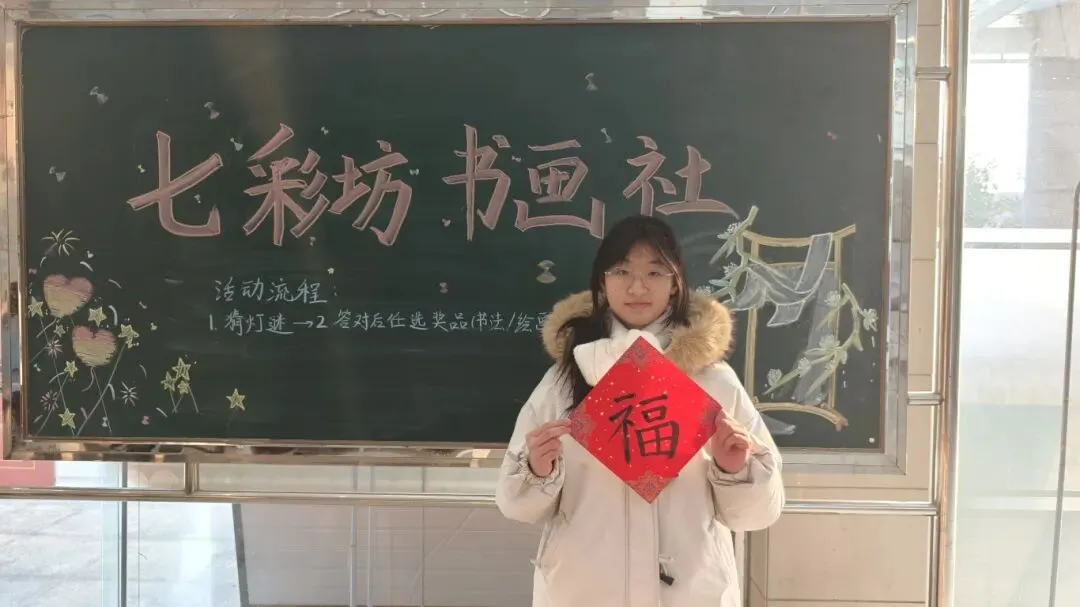 七彩坊 书画社
活动流程：
1. 猜灯谜→2. 答对后任选奖品(书法/绘画
福